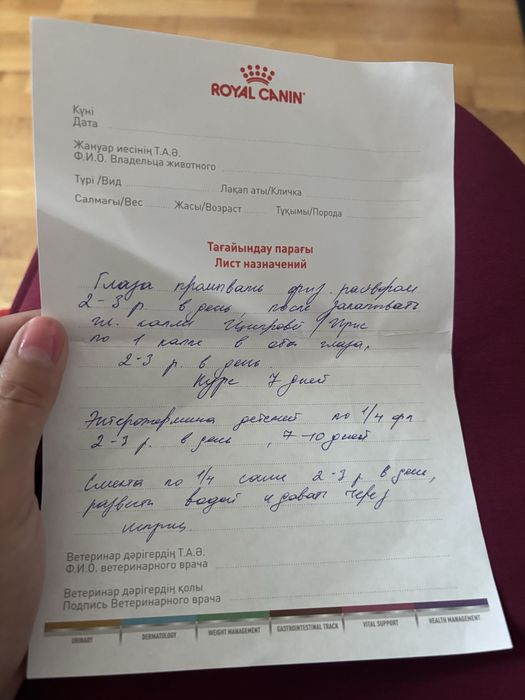 ROYAL CANIN
Күні
Дата
Жануар иесінің Т.А.Ә.
Ф.И.О. Владельца животного
Түрі /Вид Лақап аты/Кличка
Салмағы/Вес Жасы/Возраст Тұқымы/Порода
Тағайындау парағы
Лист назначений
Глаза промывать физ. раствором
2-3 р. в день, после закапывать
гл. капли Ципровет / Ирис
по 1 капле в оба глаза,
2-3 р. в день
Курс 7 дней
Энтерожермина детский по 1/4 фл
2-3 р. в день, 7-10 дней
Смекта по 1/4 саше 2-3 р в день,
развести водой и давать через
шприц.
Ветеринар дәрігердің Т.А.Ә.
Ф.И.О. ветеринарного врача
Ветеринар дәрігердің қолы
Подпись Ветеринарного врача
URINARY DERMATOLOGY WEIGHT MANAGEMENT GASTROINTESTINAL TRACK VITAL SUPPORT HEALTH MANAGEMENT